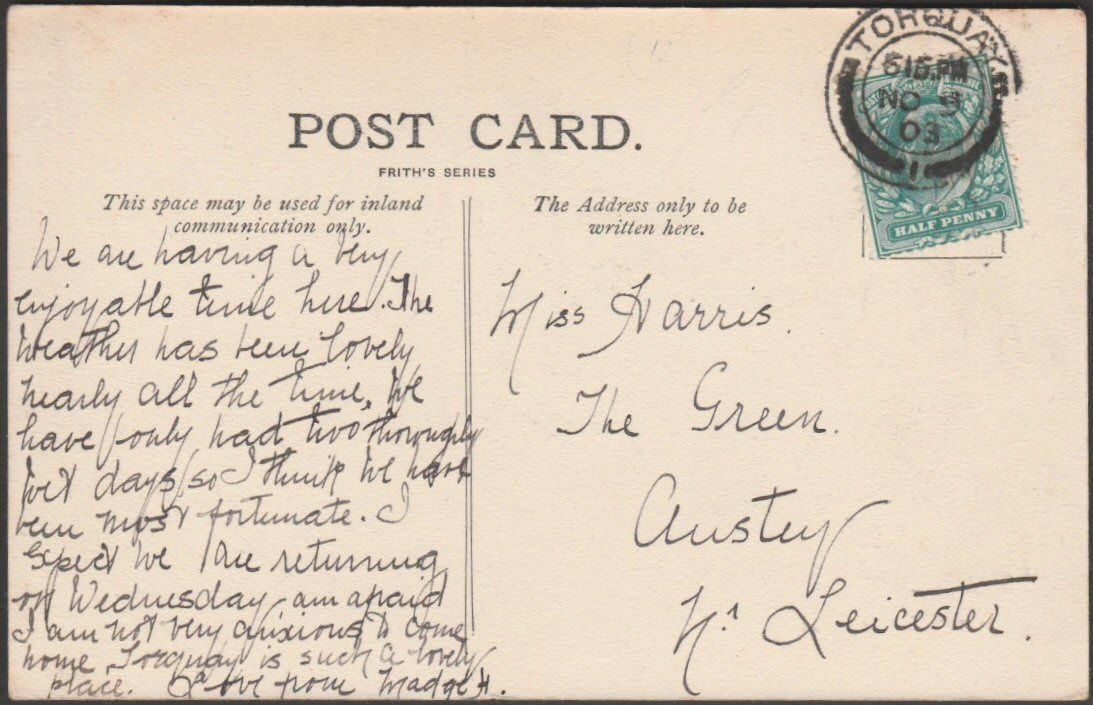 TORQUAY
515.PM
NO
03
1
HALF PENNY
POST CARD.
FRITH'S SERIES
This space may be used for inland
communication only.
The Address only to be
written here.
We are having a very
enjoyable time here. The
weather has been lovely
nearly all the time. We
have only had two thoroughly
wet days, so I think we have
been most fortunate. I
expect we are returning
on Wednesday, am afraid
I am not very anxious to come
home, Torquay is such a lovely
place. Love from Madge H.
Miss Harris.
The Green.
Anstey
Nr Leicester.